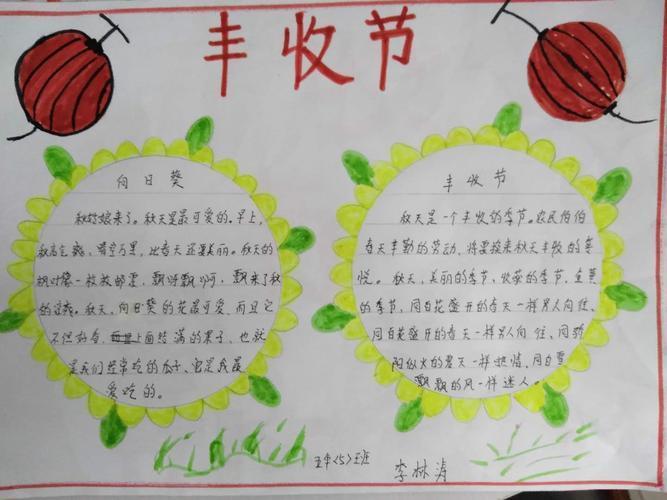 丰收节
向日葵
秋姑娘来了。秋天是最可爱的。早上,
秋高气爽,晴空万里,比春天还要美丽。秋天的
枫叶像一枚枚邮票,飘呀飘啊,飘来了秋
的凉爽。秋天,向日葵的花最可爱,而且它
不但好看,上面结满的果子,也就
是我们经常吃的瓜子,也是我最
爱吃的。
丰收节
秋天是一个丰收的季节。农民伯伯
春天辛勤的劳动,将要换来秋天丰收的喜
悦。秋天,美丽的季节,收获的季节,金黄
的季节,同百花盛开的春天一样令人向往、
同百花盛开的春天一样令人向往、同骄
阳似火的夏天一样热情、同白雪
飘飘的风一样迷人。
五年<5>班
李林涛